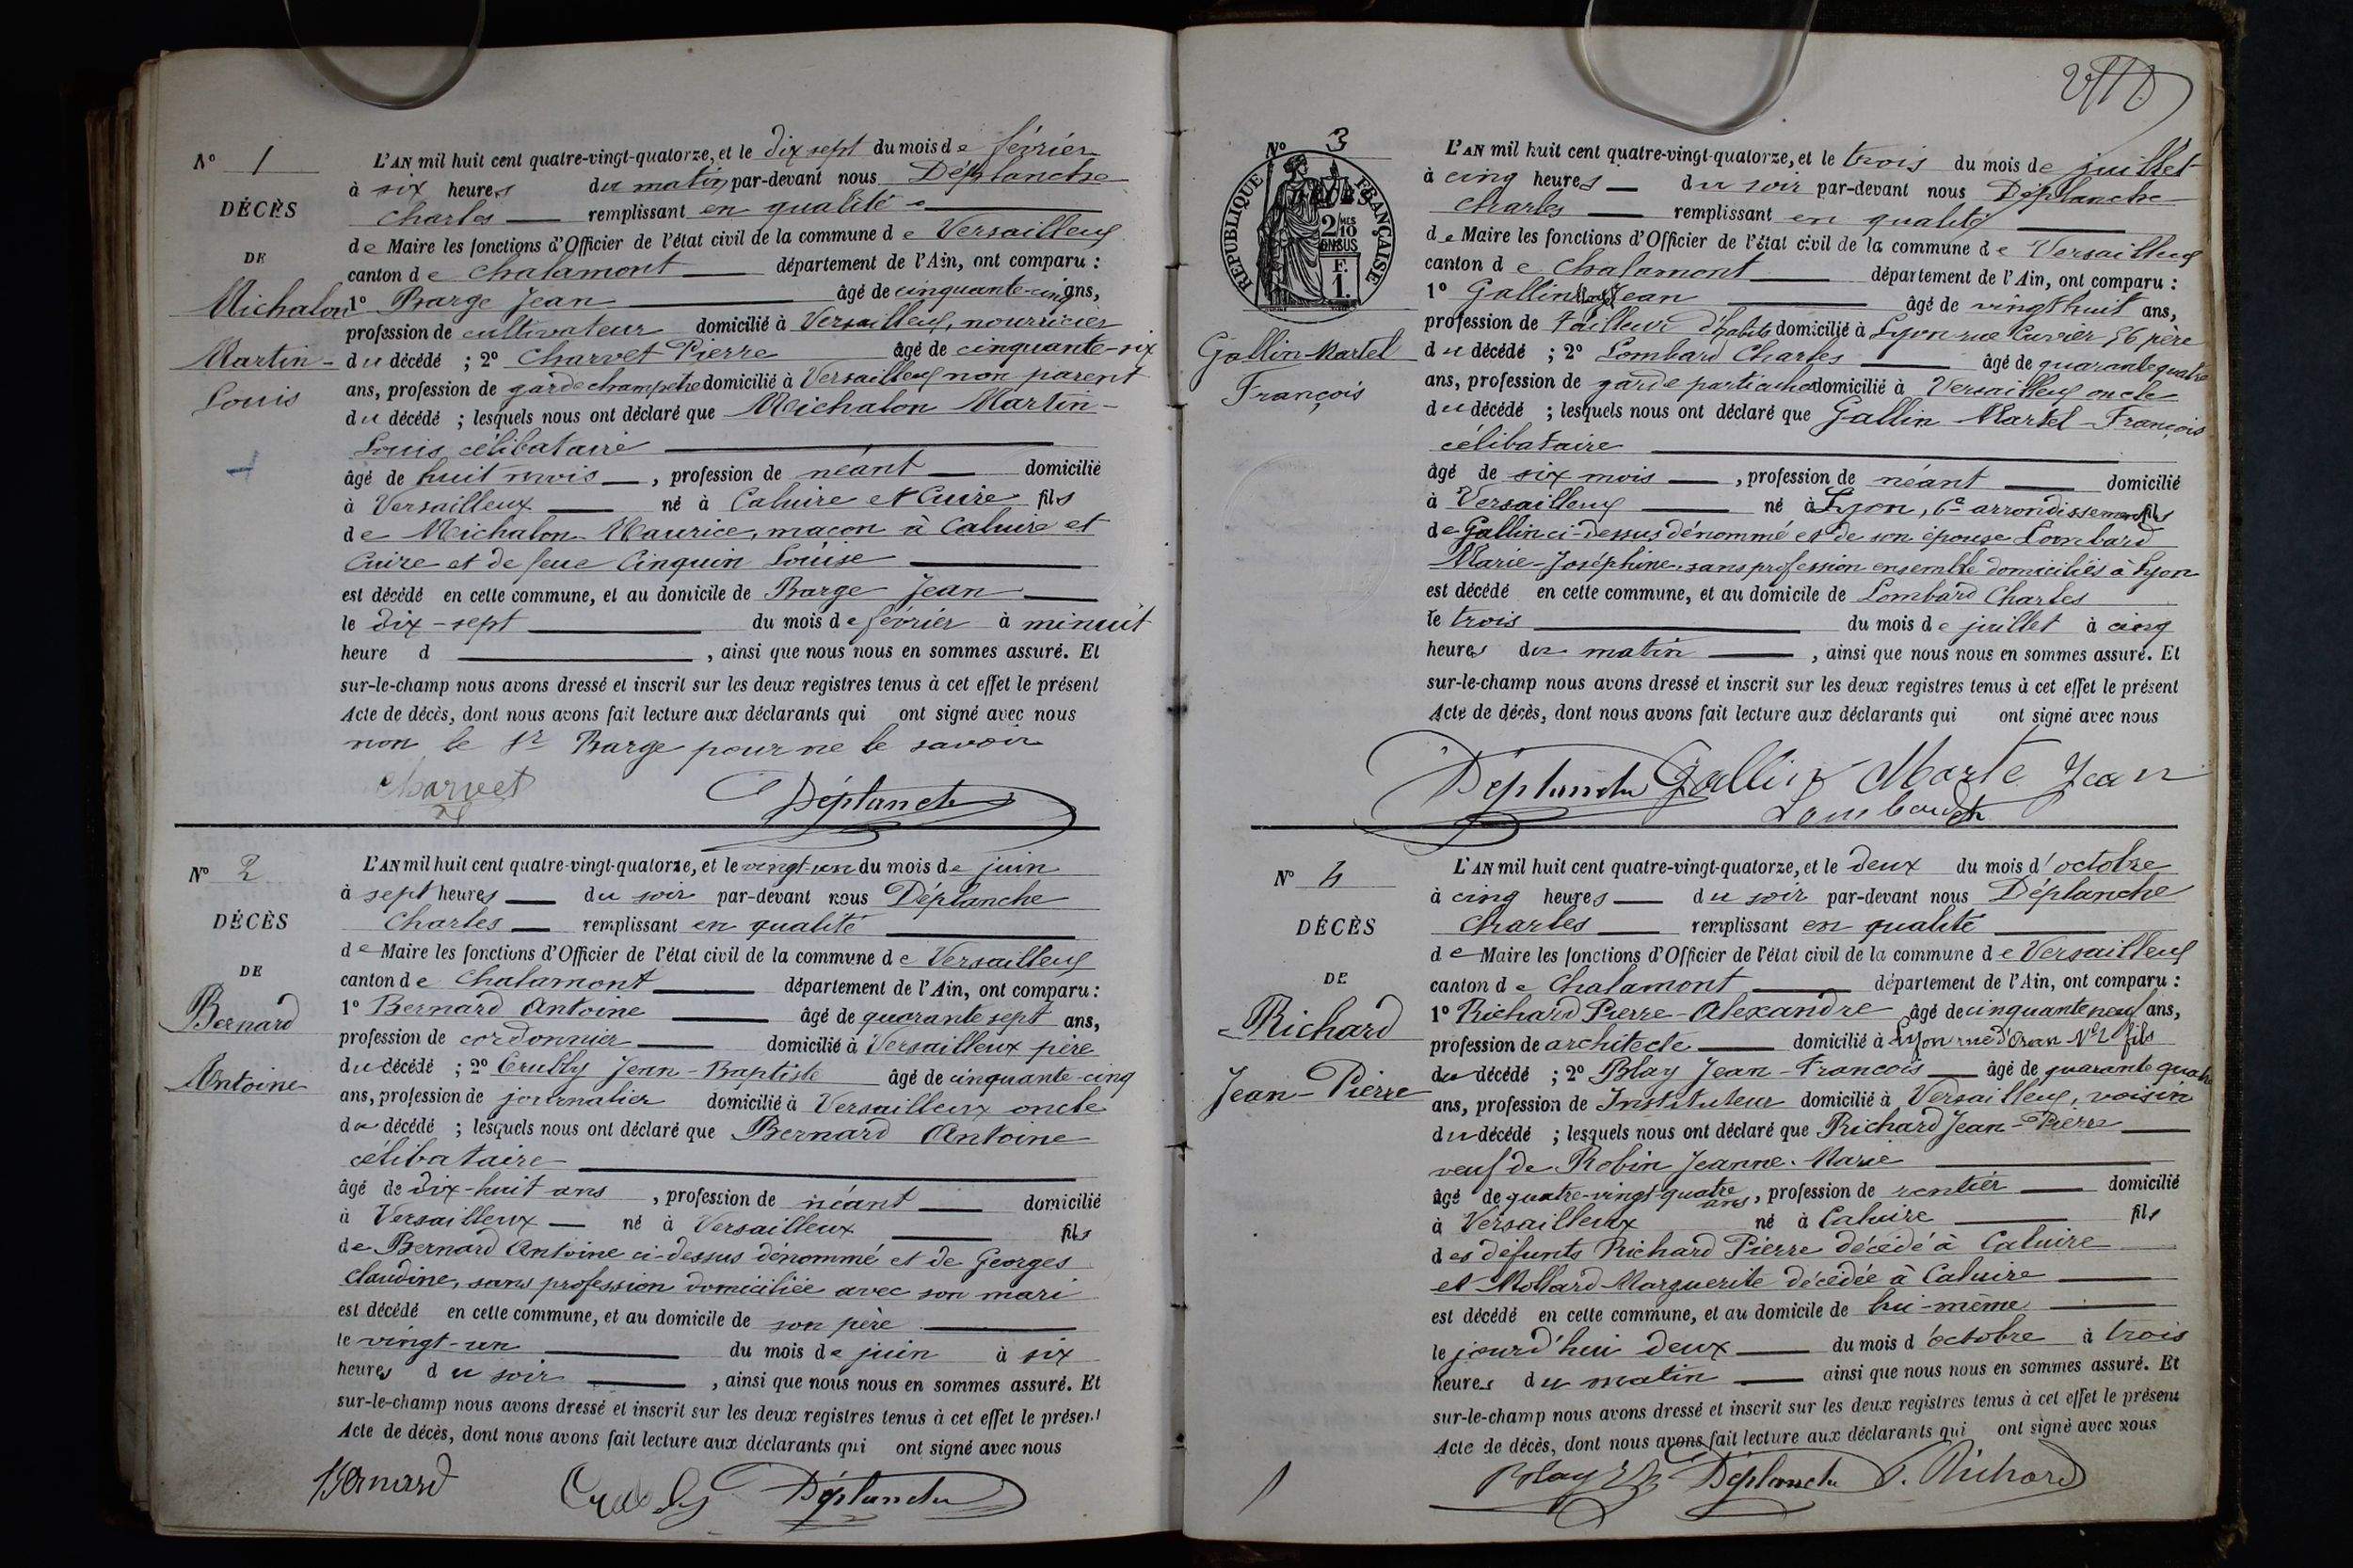 N° 1
DÉCÈS
DE
Michalon
Martin-
Louis
L'AN mil huit cent quatre-vingt-quatorze, et le dix sept du mois de février
à six heures du matin par-devant nous Déplanche
Charles remplissant en qualité
de Maire les fonctions d'Officier de l'état civil de la commune de Versailleux
canton de Chalamont département de l'Ain, ont comparu :
1° Barge Jean âgé de cinquante-cinq ans,
profession de cultivateur domicilié à Versailleux, nourricier
du décédé ; 2° Charvet Pierre âgé de cinquante-six
ans, profession de garde champêtre domicilié à Versailleux non parent
du décédé ; lesquels nous ont déclaré que Michalon Martin-
Louis célibataire
âgé de huit mois, profession de néant domicilié
à Versailleux né à Caluire et Cuire fils
de Michalon Maurice, maçon à Caluire et
Cuire et de feue Cinquin Louise
est décédé en cette commune, et au domicile de Barge Jean
le dix-sept du mois de février à minuit
heure d , ainsi que nous nous en sommes assuré. Et
sur-le-champ nous avons dressé et inscrit sur les deux registres tenus à cet effet le présent
Acte de décès, dont nous avons fait lecture aux déclarants qui ont signé avec nous
non le Sr Barge pour ne le savoir
Charvet Déplanche
N° 2
DÉCÈS
DE
Bernard
Antoine
L'AN mil huit cent quatre-vingt-quatorze, et le vingt-un du mois de juin
à sept heures du soir par-devant nous Déplanche
Charles remplissant en qualité
de Maire les fonctions d'Officier de l'état civil de la commune de Versailleux
canton de Chalamont département de l'Ain, ont comparu :
1° Bernard Antoine âgé de quarante sept ans,
profession de cordonnier domicilié à Versailleux père
du décédé ; 2° Crubly Jean-Baptiste âgé de cinquante-cinq
ans, profession de journalier domicilié à Versailleux oncle
du décédé ; lesquels nous ont déclaré que Bernard Antoine
célibataire
âgé de dix-huit ans, profession de néant domicilié
à Versailleux né à Versailleux fils
de Bernard Antoine ci-dessus dénommé et de Georges
Claudine, sans profession domiciliée avec son mari
est décédé en cette commune, et au domicile de son père
le vingt-un du mois de juin à six
heures du soir, ainsi que nous nous en sommes assuré. Et
sur-le-champ nous avons dressé et inscrit sur les deux registres tenus à cet effet le présent
Acte de décès, dont nous avons fait lecture aux déclarants qui ont signé avec nous
Bernard Crubly Déplanche
N° 3
RÉPUBLIQUE FRANÇAISE
2/10
EN SUS
F.
1.
Gallin-Martel
François
L'AN mil huit cent quatre-vingt-quatorze, et le trois du mois de juillet
à cinq heures du soir par-devant nous Déplanche
Charles remplissant en qualité
de Maire les fonctions d'Officier de l'état civil de la commune de Versailleux
canton de Chalamont département de l'Ain, ont comparu :
1° Gallin Martel Jean âgé de vingt huit ans,
profession de tailleur d'habits domicilié à Lyon rue Cuvier 56 père
du décédé ; 2° Lombard Charles âgé de quarante quatre
ans, profession de garde particulier domicilié à Versailleux oncle
du décédé ; lesquels nous ont déclaré que Gallin Martel-François
célibataire
âgé de six mois, profession de néant domicilié
à Versailleux né à Lyon, 6e arrondissement fils
de Gallin ci-dessus dénommé et de son épouse Lombard
Marie-Joséphine, sans profession ensemble domiciliés à Lyon
est décédé en cette commune, et au domicile de Lombard Charles
le trois du mois de juillet à cinq
heures du matin, ainsi que nous nous en sommes assuré. Et
sur-le-champ nous avons dressé et inscrit sur les deux registres tenus à cet effet le présent
Acte de décès, dont nous avons fait lecture aux déclarants qui ont signé avec nous
Déplanche Gallin Marte Jean
Lombard
N° 4
DÉCÈS
DE
Richard
Jean-Pierre
L'AN mil huit cent quatre-vingt-quatorze, et le deux du mois d'octobre
à cinq heures du soir par-devant nous Déplanche
Charles remplissant en qualité
de Maire les fonctions d'Officier de l'état civil de la commune de Versailleux
canton de Chalamont département de l'Ain, ont comparu :
1° Richard Pierre-Alexandre âgé de cinquante neuf ans,
profession de architecte domicilié à Lyon rue d'Oran N° 2 fils
du décédé ; 2° Blay Jean-François âgé de quarante quatre
ans, profession de Instituteur domicilié à Versailleux, voisin
du décédé ; lesquels nous ont déclaré que Richard Jean-Pierre
veuf de Robin Jeanne-Marie
âgé de quatre-vingt-quatre ans, profession de rentier domicilié
à Versailleux né à Caluire fils
des défunts Richard Pierre décédé à Caluire
et Mollard Marguerite décédée à Caluire
est décédé en cette commune, et au domicile de lui-même
le jourd'hui deux du mois d'octobre à trois
heures du matin ainsi que nous nous en sommes assuré. Et
sur-le-champ nous avons dressé et inscrit sur les deux registres tenus à cet effet le présent
Acte de décès, dont nous avons fait lecture aux déclarants qui ont signé avec nous
Blay Déplanche P. Richard